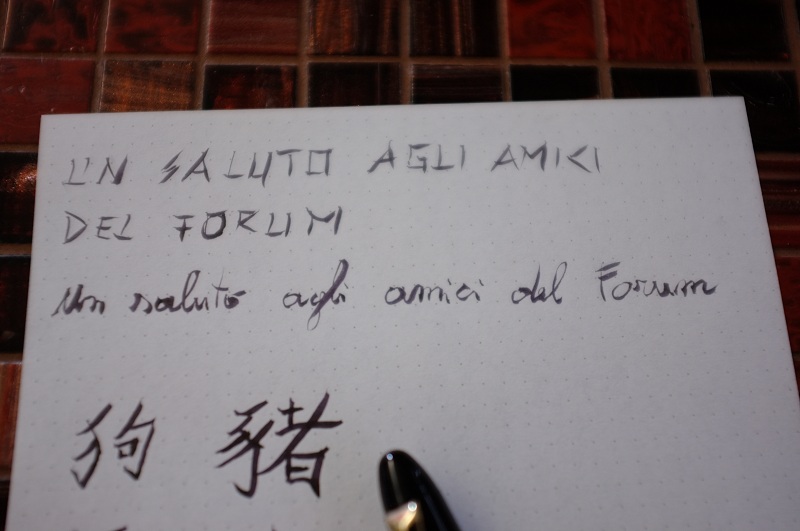 UN SALUTO AGLI AMICI
DEL FORUM
Un saluto agli amici del Forum
狗 豬